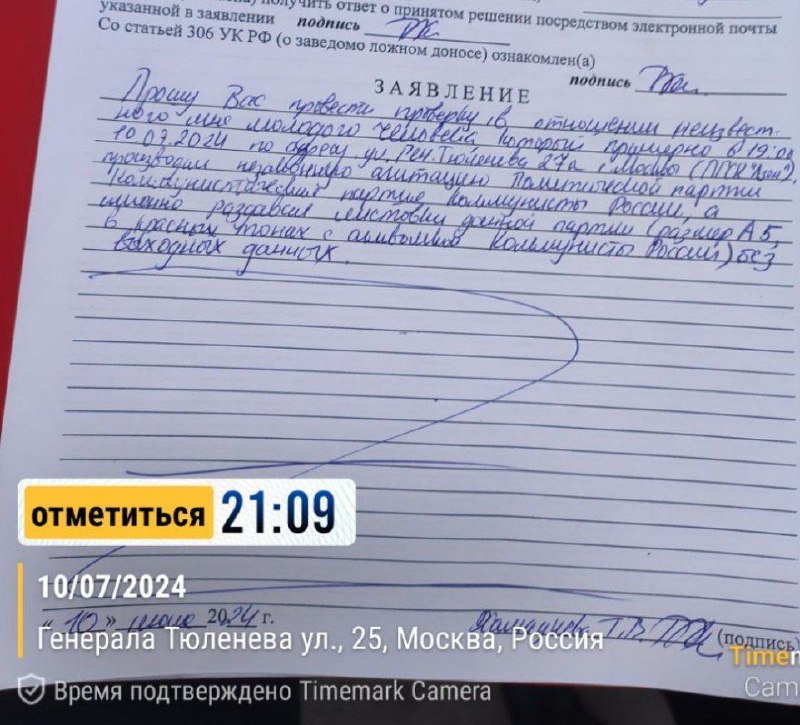 получить ответ о принятом решении посредством электронной почты
указанной в заявлении подпись
Со статьей 306 УК РФ (о заведомо ложном доносе) ознакомлен(а)
подпись
ЗАЯВЛЕНИЕ
Прошу Вас провести проверку в отношении неизвест-
ного мне молодого человека который примерно в 19:00
10.07.2024 по адресу ул. Ген. Тюленева 27а г. Москвы
производил незаконную агитацию Политической партии
Коммунистической партии Коммунисты России, а
именно раздавал листовки данной партии (размер А5,
в красных тонах с символикой Коммунисты России) без
выходных данных.
отметиться 21:09
10/07/2024
"10" июля 2024 г. Т.В. (подпись)
Генерала Тюленева ул., 25, Москва, Россия
Время подтверждено Timemark Camera